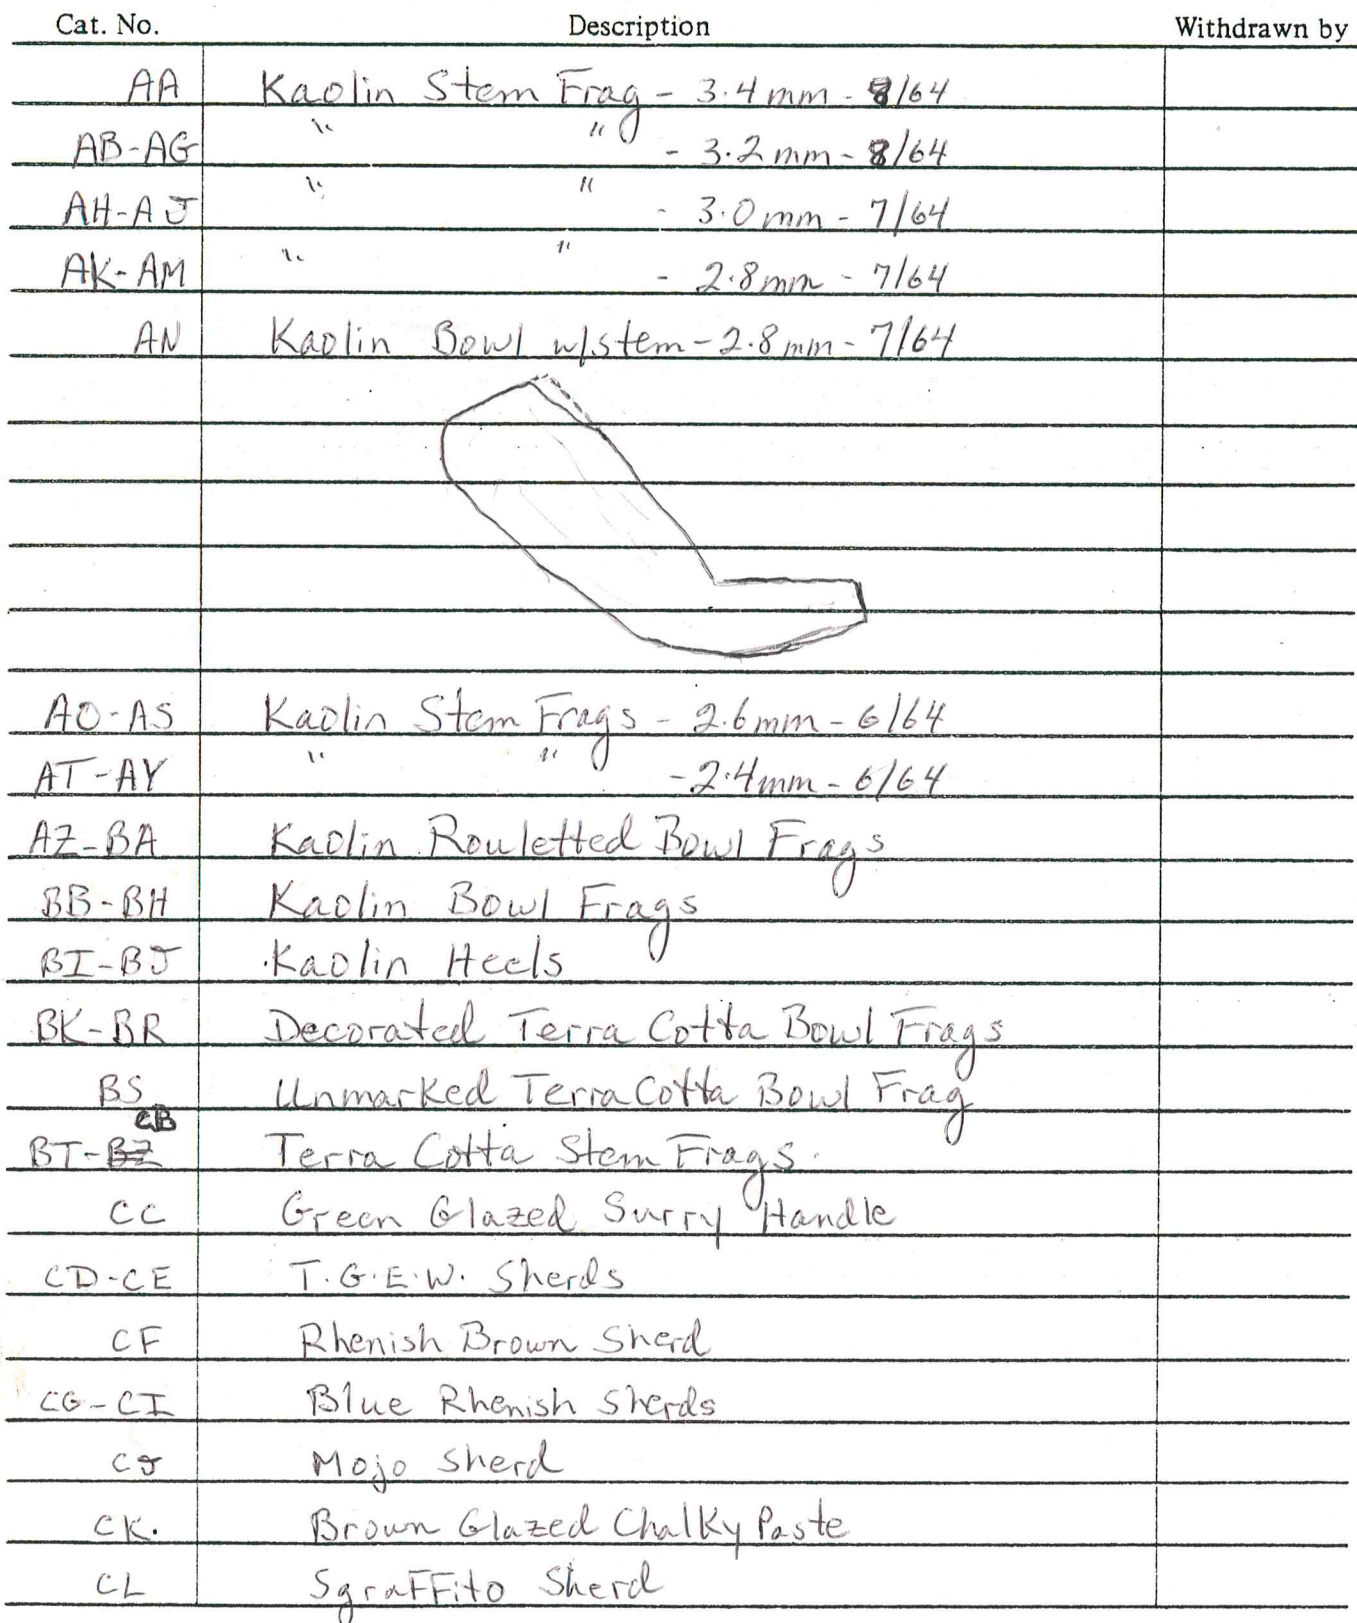 Cat. No. Description Withdrawn by
AA Kaolin Stem Frag - 3.4 mm - 8/64
AB-AG " " - 3.2 mm - 8/64
AH-AJ " " - 3.0 mm - 7/64
AK-AM " " - 2.8 mm - 7/64
AN Kaolin Bowl w/stem - 2.8 mm - 7/64
AO-AS Kaolin Stem Frags - 2.6 mm - 6/64
AT-AY " " - 2.4 mm - 6/64
AZ-BA Kaolin Rouletted Bowl Frags
BB-BH Kaolin Bowl Frags
BI-BJ Kaolin Heels
BK-BR Decorated Terra Cotta Bowl Frags
BS Unmarked Terra Cotta Bowl Frag
CB
BT-BZ Terra Cotta Stem Frags.
CC Green Glazed Surry Handle
CD-CE T.G.E.W. Sherds
CF Rhenish Brown Sherd
CG-CI Blue Rhenish Sherds
CJ Mojo Sherd
CK. Brown Glazed Chalky Paste
CL Sgraffito Sherd